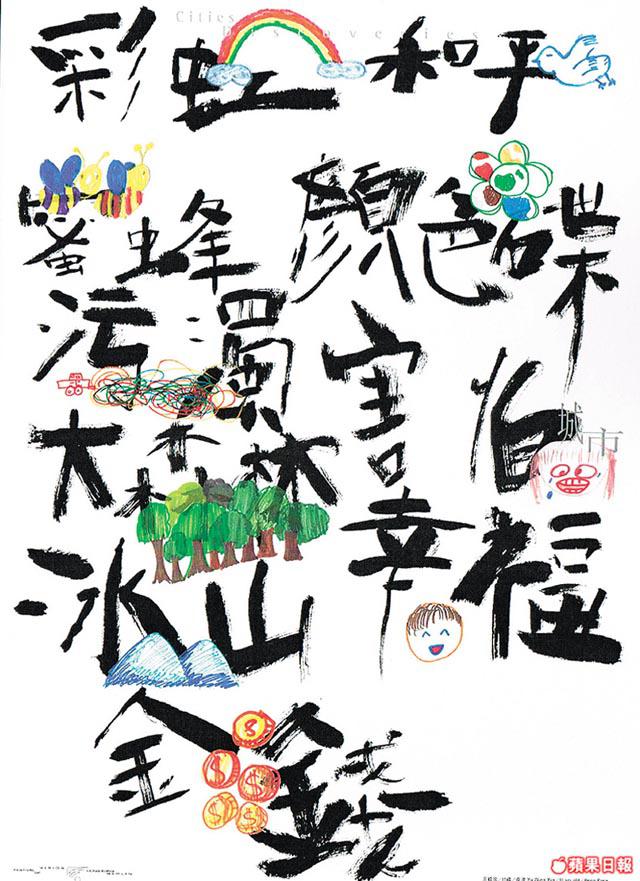 Cities
Discoveries
彩虹 和平
蜜蜂 顏色碟
污濁 害怕
城市
大森林 幸福
冰山
金錢
蘋果日報